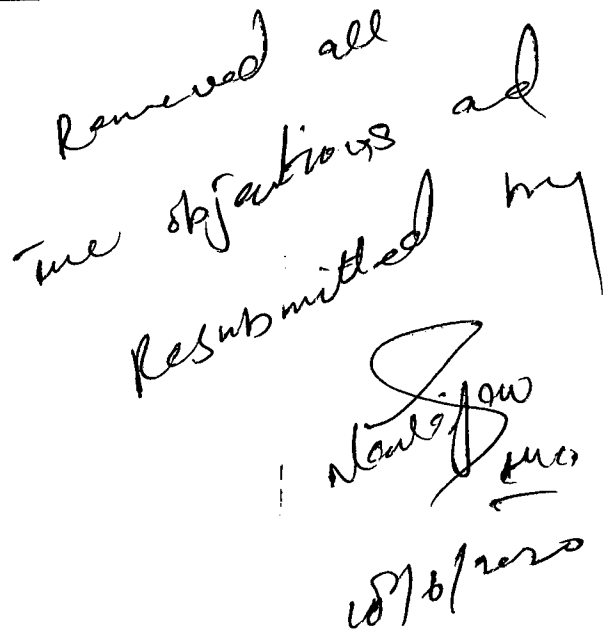 Removed all
The objections and
Resubmitted by
18/6/2020